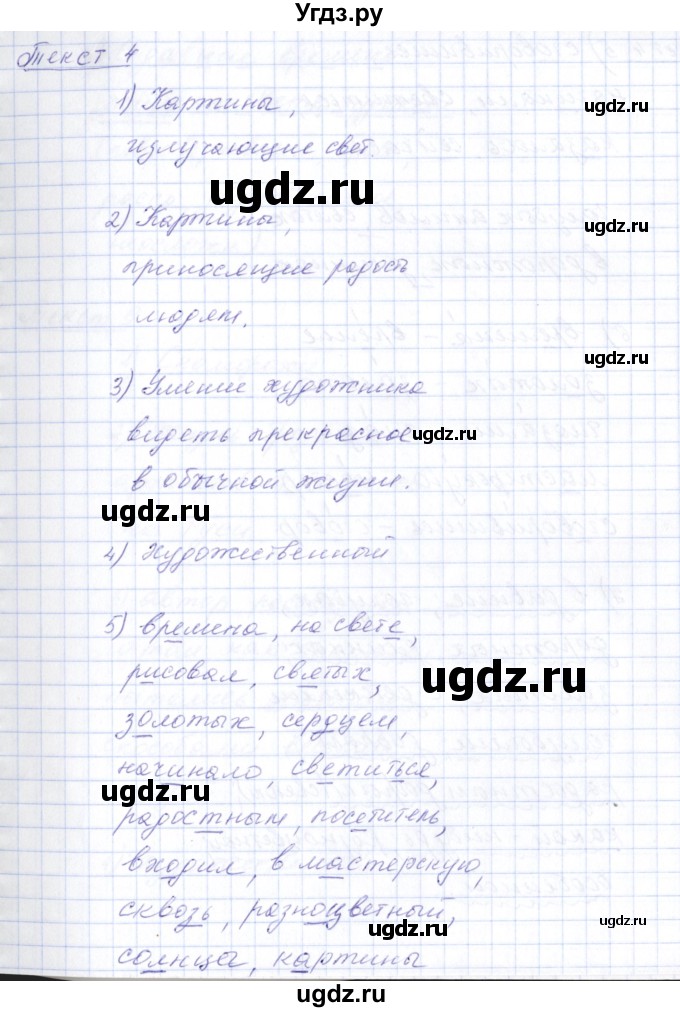 Угдз.ру
Текст 4
1) Картины,
излучающие свет.
2) Картины,
приносящие радость
людям.
3) Умение художника
видеть прекрасное
в обычной жизни.
4) Художественный
5) времена, на свете,
рисовал, святых,
золотых, сердцем,
начинало, светиться,
радостным, посетитель,
входил, в мастерскую,
сквозь, разноцветный,
солнца, картины
ugdz.ru
ugdz.ru
ugdz.ru
ugdz.ru
ugdz.ru
ugdz.ru
ugdz.ru
ugdz.ru
ugdz.ru
ugdz.ru
ugdz.ru
ugdz.ru
ugdz.ru